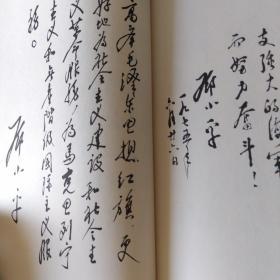 支强大的海军
而努力奋斗！
邓小平
一九七五年
六月廿六日
高举毛泽东思想红旗，更
好地为社会主义建设和社会主
义革命服务，为马克思列宁
主义和无产阶级国际主义服
务。
邓小平